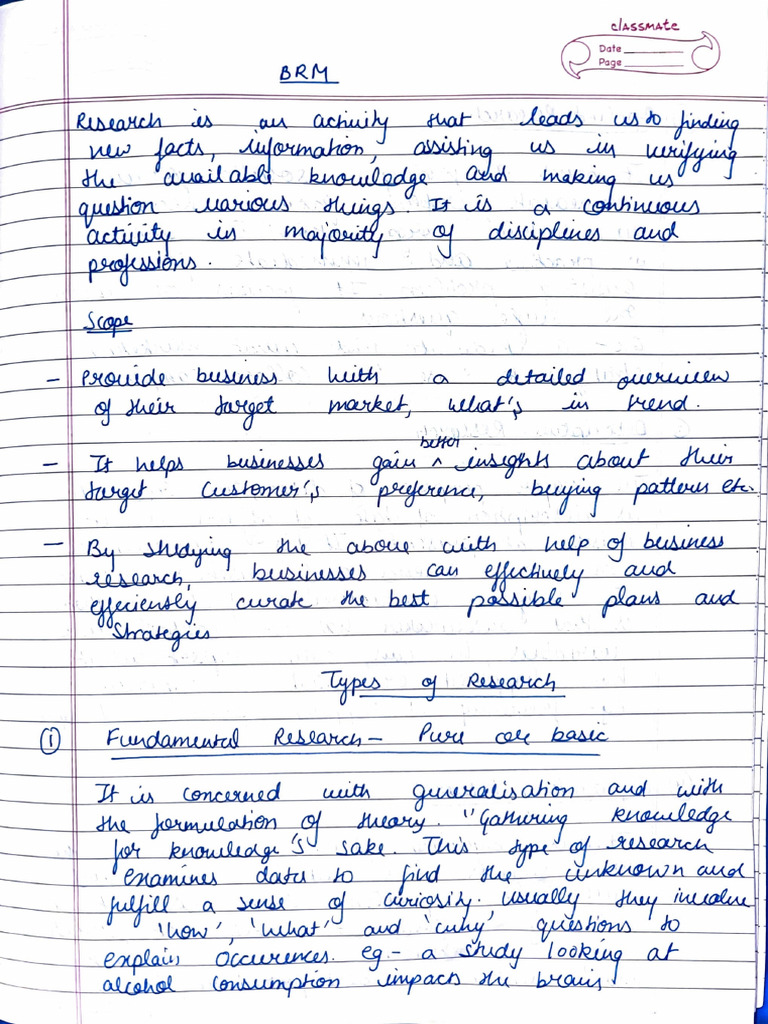 classmate
Date
Page
BRM
Research is an activity that leads us to finding
new facts, information, assisting us in verifying
the available knowledge and making us
question various things. It is a continuous
activity in majority of disciplines and
professions.
Scope
- Provide business with a detailed overview
of their target market, what's in trend.
- It helps businesses gain ^ better insights about their
target customer's preference, buying pattern etc.
- By studying the above with help of business
research, businesses can effectively and
effeciently curate the best possible plans and
strategies
Types of Research
① Fundamental Research - Pure or basic
It is concerned with generalisation and with
the formulation of theory. "Gathering knowledge
for knowledge's sake. This type of research
examines data to find the unknown and
fulfill a sense of curiosity. Usually they involve
'how', 'what' and 'why' questions to
explain occurences. eg - a study looking at
alcohol consumption impacts the brain